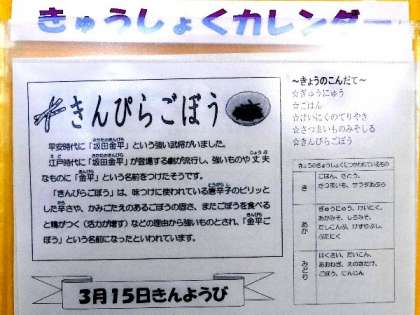 きゅうしょくカレンダー
きんぴらごぼう
平安時代に「坂田金平」という強い武将がいました。
江戸時代に「坂田金平」が登場する劇が流行し、強いものや丈夫
なものに「金平」という名前をつけたそうです。
「きんぴらごぼう」は、味つけに使われている唐辛子のピリッと
した辛さや、かみごたえのあるごぼうの固さ、またごぼうを食べる
と精がつく（活力が増す）などの理由から強いものとされ、「金平ご
ぼう」という名前になったといわれています。
3月15日きんようび
～きょうのこんだて～
☆ぎゅうにゅう
☆ごはん
☆けいにくのてりやき
☆さつまいものみそしる
☆きんぴらごぼう
きょうのきゅうしょくにつかわれているもの
き
ごはん、さとう、
さつまいも、サラダあぶら
あか
ぎゅうにゅう、けいにく、
あかみそ、しろみそ、
だしこんぶ、けずりぶし、
ぶたにく
みどり
はくさい、だいこん、
あおねぎ、えのきだけ、
ごぼう、にんじん